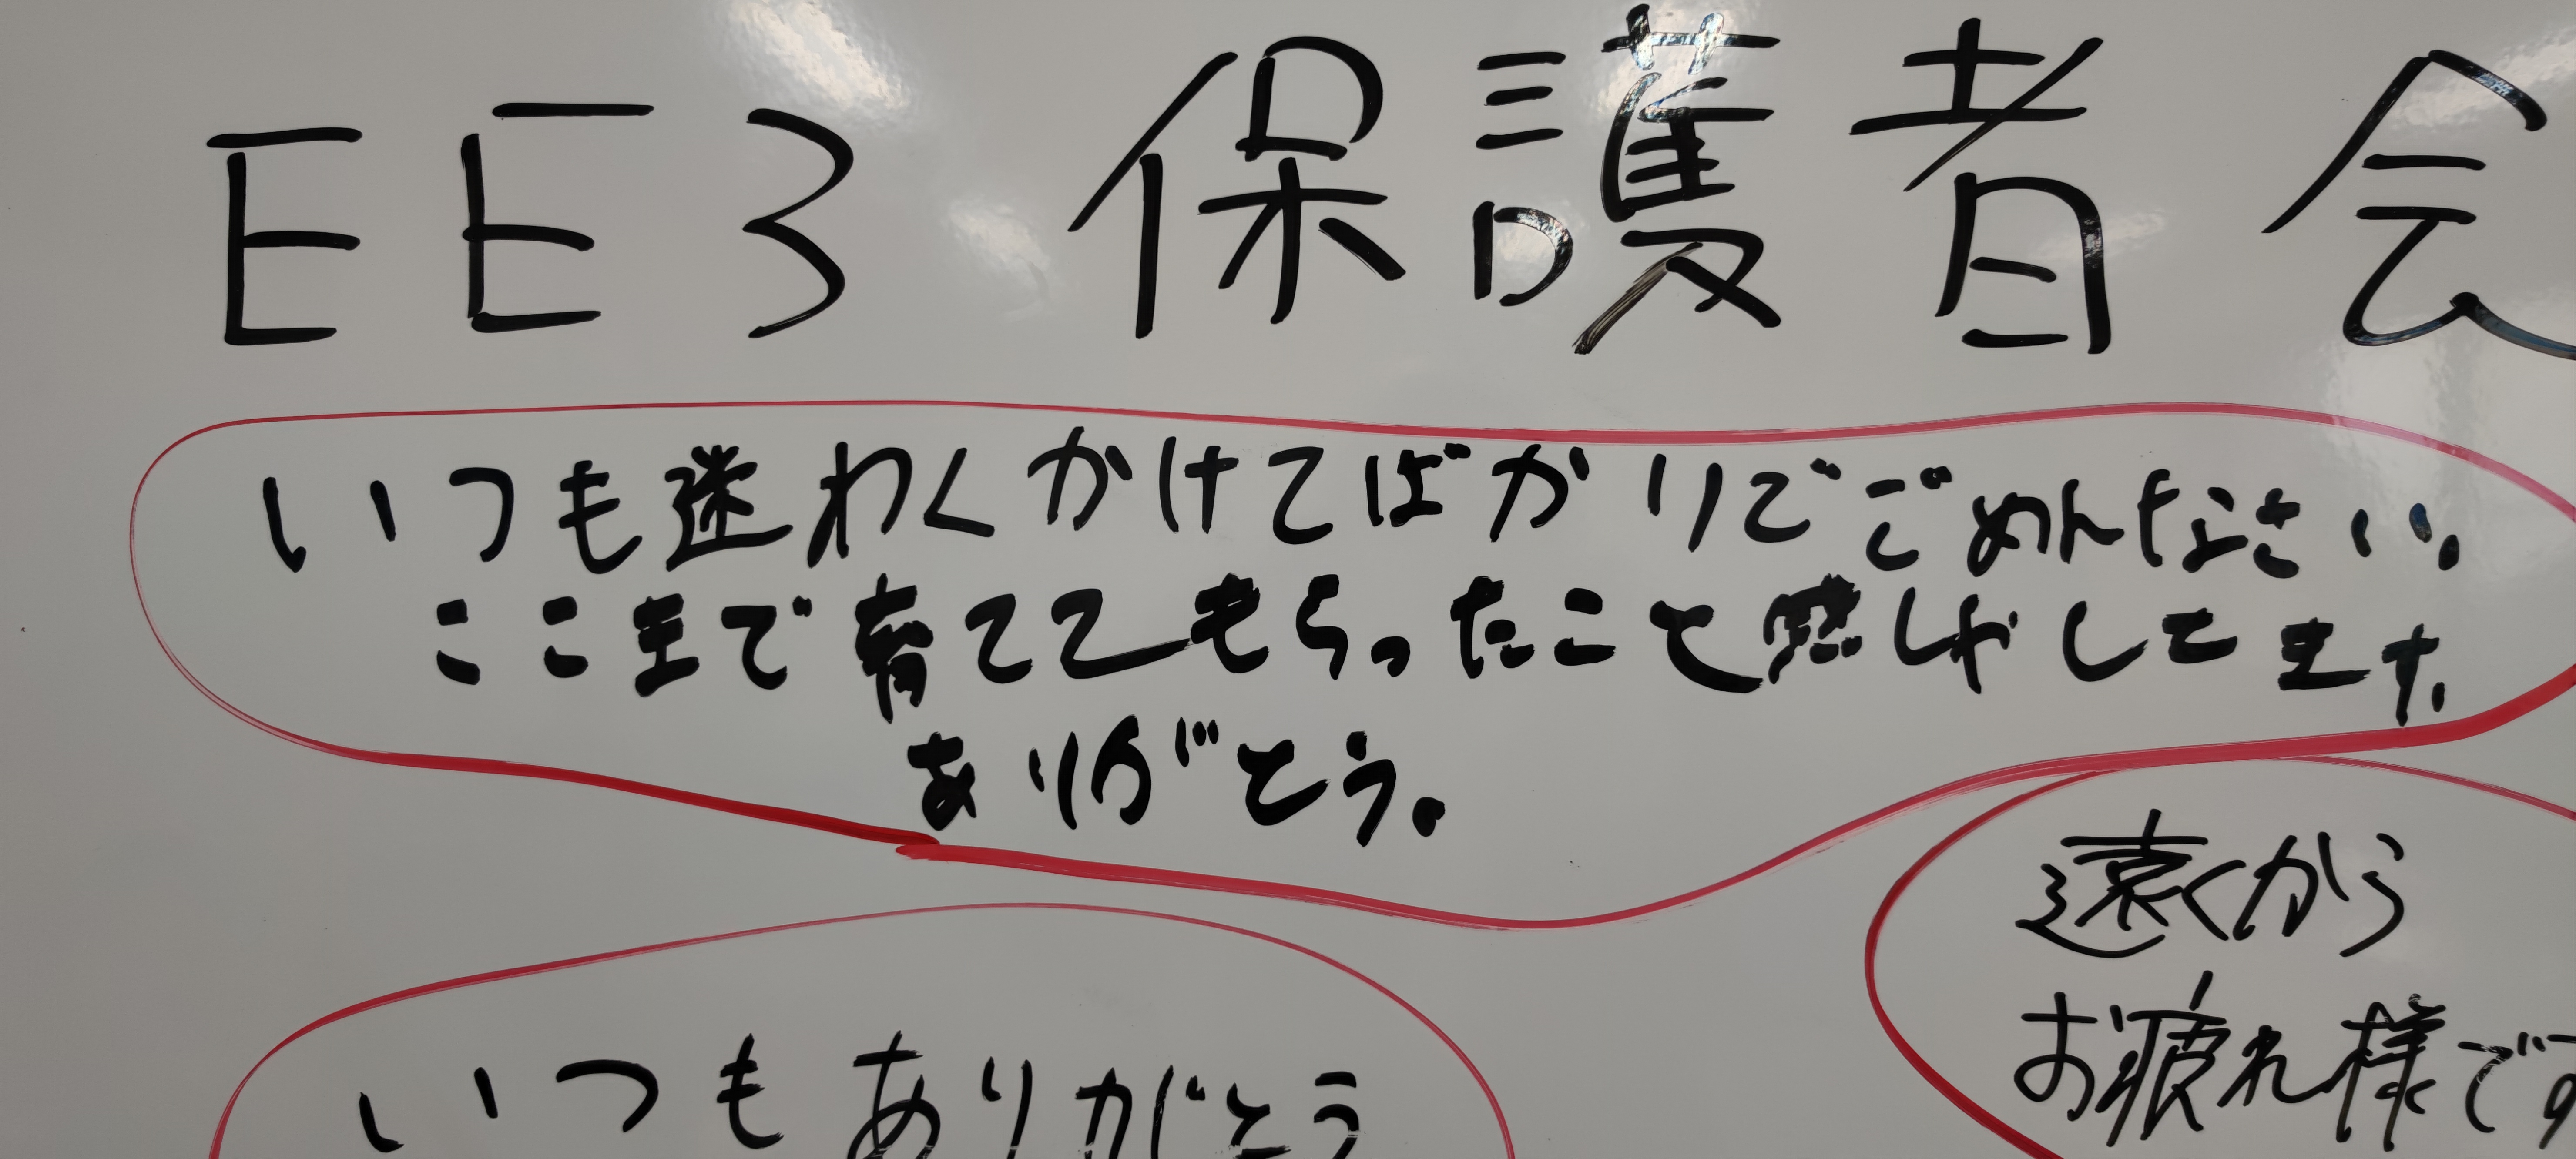 EE3 保護者会
いつも迷わくかけてばかりでごめんなさい。
ここまで育ててもらったこと感しゃしてます。
ありがとう。
遠くから
お疲れ様です
いつもありがとう